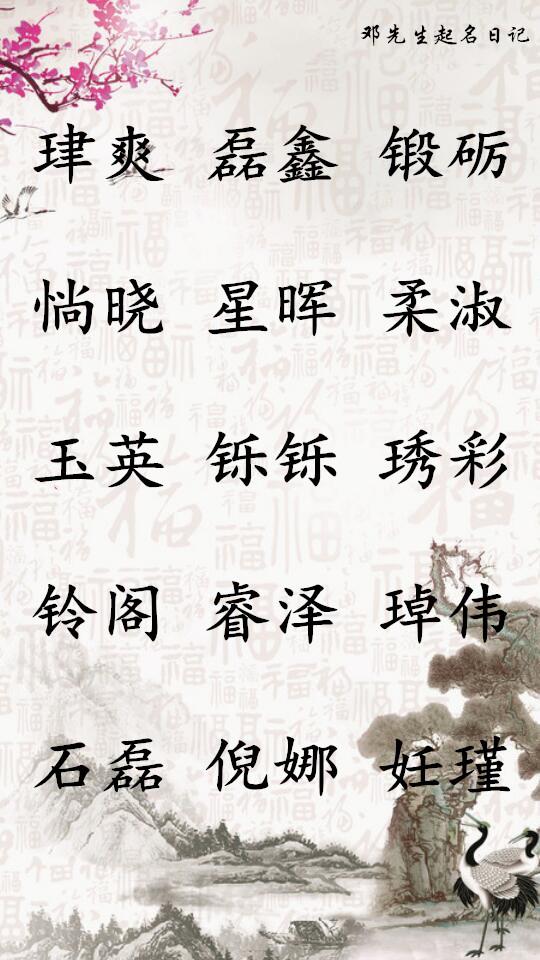 邓先生起名日记
珒爽 磊鑫 锻砺
惝晓 星晖 柔淑
玉英 铄铄 琇彩
铃阁 睿泽 琸伟
石磊 倪娜 妊瑾